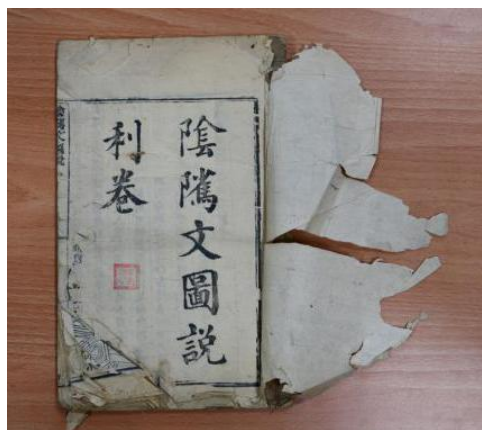 陰隲文圖説
利卷